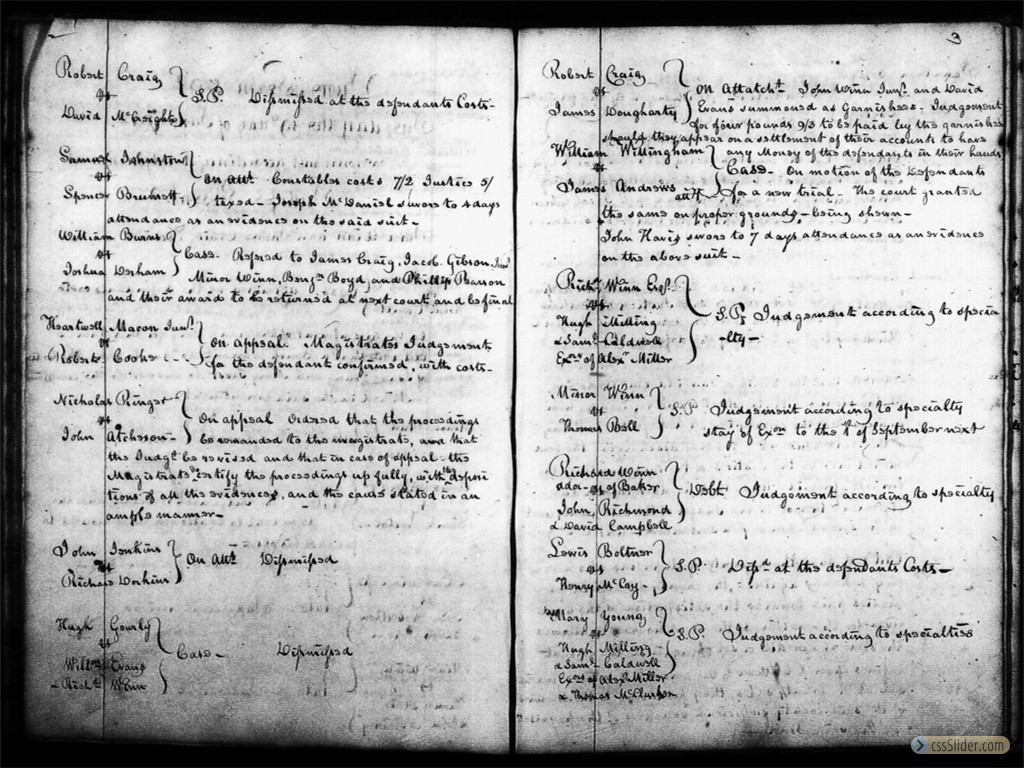 Robert Craig
vs
David McCreight
S.P. Dismissed at the defendants Costs—
Samuel Johnston
vs
Spencer
on att. Constables costs 7/2 Justice 5/
taxed— Joseph McDaniel swore to 4 days
attendance as an evidence on the said suit—
William Burns
vs
Joshua Derham
Case. Refred to James Craig, Jacob Gibson
Minor Winn, Benjn Boyd, and Phillip Pearson
and their award to be returned at next court and be final
Heartwell Macon Junr.
vs
Robert Cooke
on appeal. Magistrates Judgement
for the defendant confirmed, with costs—
Nicholas Ringer
vs
John Atcheson—
On appeal ordered that the proceedings
be remanded to the magistrate, and that
the Judgt be revised and that in case of appeal the
Magistrate certify the proceedings up fully, with the deposi
tions of all the evidences, and the cause stated in an
ample manner—
John Jenkins
vs
Richard Workins
On att. Dismissed
Hugh Gourly
vs
Willm Evans
& Richd Winn
Case— Dismissed
3
Robert Craig
vs
James Dougharty
On Attatcht John Winn Junr. and David
Evans summoned as Garnishees. Judgement
for four pounds 9/3 to be paid by the garnishees
should they appear on a settlement of their accounts to have
any Money of the defendants in their hands
William Willingham
vs
James Andrews
Case— On motion of the Defendants
atty for a new trial— The court granted
the same on proper grounds— being shewn—
John Havis swore to 7 days attendance as an evidence
on the above suit—
Richd Winn Esqr.
vs
Hugh Milling
& Saml. Caldwell
Exrs of Alexr Miller
S.P. Judgement according to specia
-lty—
Minor Winn
vs
Thomas Bell
S.P. Judgement according to specialty
stay of Exon to the 1st of September next
Richard Winn
of Baker
vs
John Richmond
& David Campbell
Debt Judgement according to specialty
Lewis Boltner
vs
Henry McCoy—
S.P. Disd at the defendants Costs—
Mary Young
vs
Hugh Milling
& Saml. Caldwell
Exors of Alexr Miller
& Thomas McClurkin
S.P. Judgement according to specialties
cssSlider.com